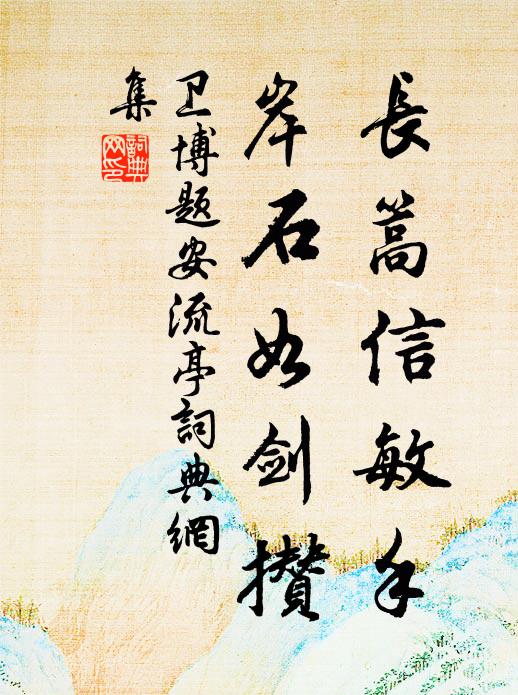 長篙信敏手
岸石如剑攅
卫博题安流亭詞典網
集
詞典
网印